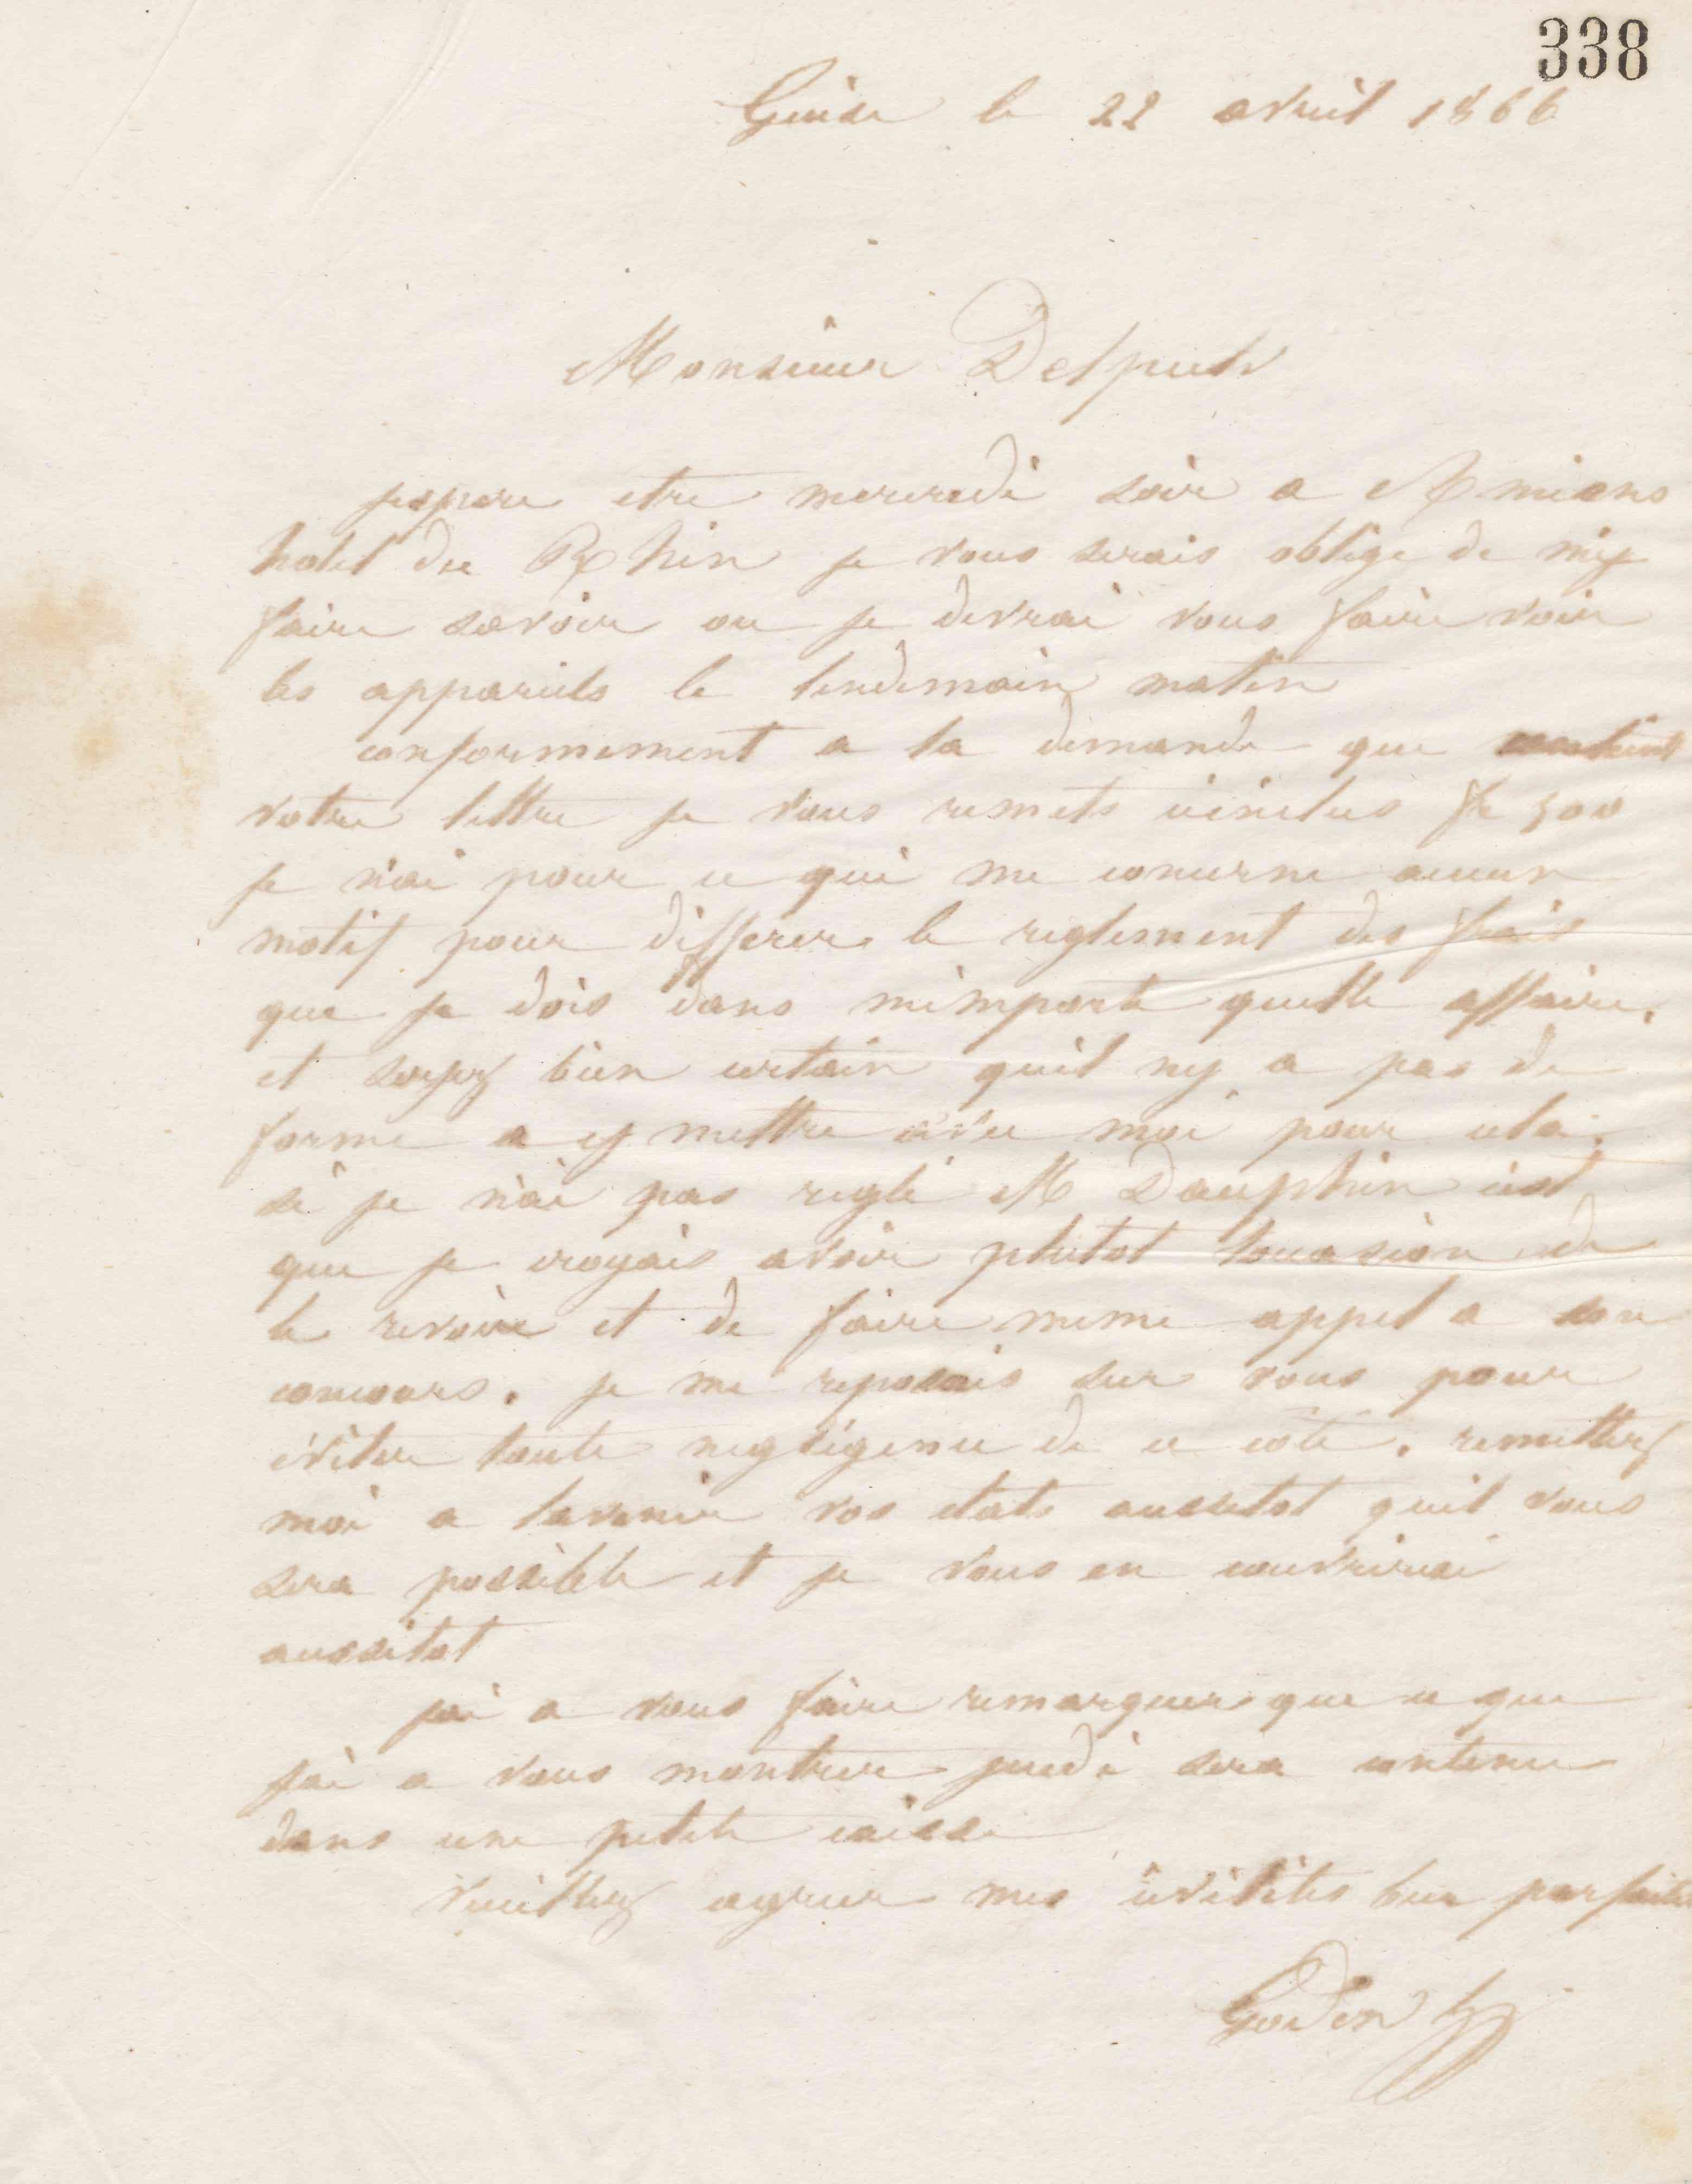 338
Guise le 22 avril 1866
Monsieur Delpech
jespere etre mercredi soir a Amiens
hotel du Rhin je vous serais oblige de my
faire savoir ou je devrai vous faire voir
les appareils le lendemain matin
conformement a la demande que contient
votre lettre je vous remets ceinclus fr 500
je nai pour ce qui me concerne aucun
motif pour differer le reglement des frais
que je dois dans nimporte quelle affaire.
et soyez bien certain quil ny a pas de
forme a y mettre avec moi pour cela.
si je nai pas regle M Dauphin cest
que je croyais avoir plutot loccasion de
le revoir et de faire meme appel a son
concours. je me reposais sur vous pour
éviter toute negligence de ce coté. remettez
moi a lavenir vos etats aussitot quil vous
sera possible et je vous en couvrirai
aussitot
jai a vous faire remarquer que ce que
jai a vous montrer jeudi sera contenu
dans une petite caisse
Veuillez agreer mes civilités bien parfaites
Godin